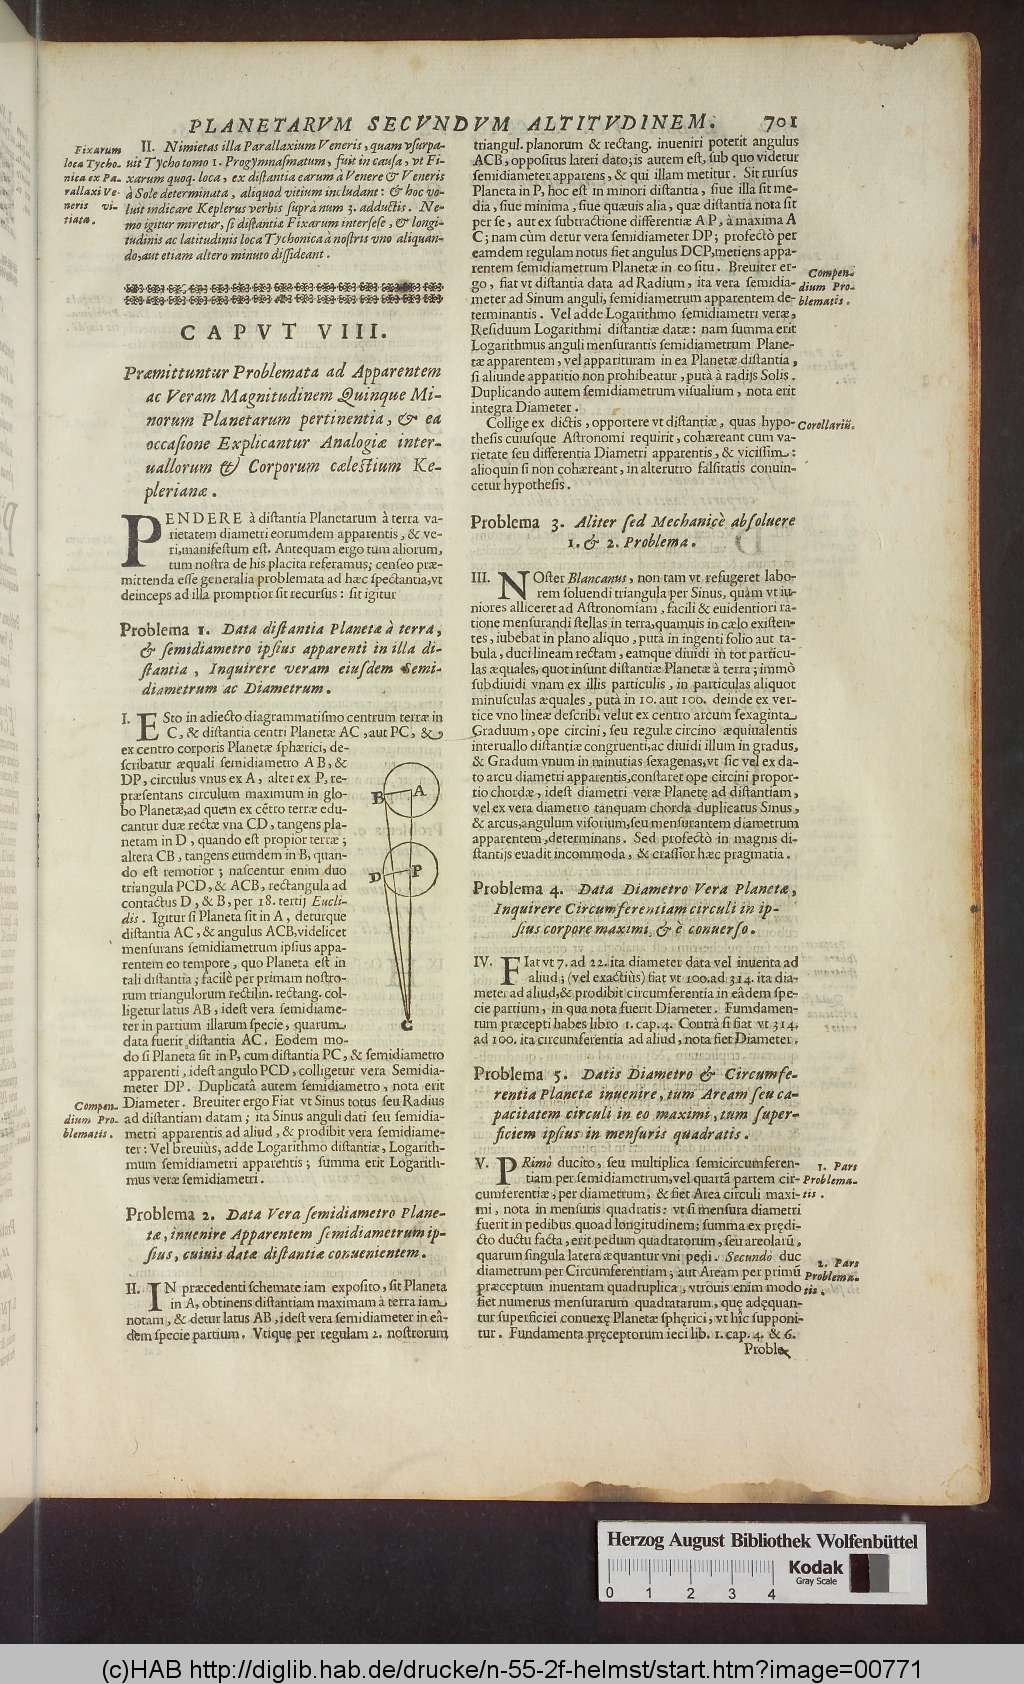 PLANETARVM SECVNDVM ALTITVDINEM. 701
Fixarum
loca Tycho-
nica ex Pa-
rallaxi Ve-
neris vi-
tiata.
II. Nimietas illa Parallaxium Veneris, quam vſurpa-
uit Tycho tomo 1. Progymnaſmatum, fuit in cauſa, vt Fi-
xarum quoq. loca, ex diſtantia earum à Venere & Veneris
à Sole determinata, aliquod vitium includant: & hoc vo-
luit indicare Keplerus verbis ſupra num 3. adductis. Ne-
mo igitur miretur, ſi diſtantiæ Fixarum interſeſe, & longi-
tudinis ac latitudinis loca Tychonica à noſtris vno aliquan-
do, aut etiam altero minuto diſſideant.
CAPVT VIII.
Præmittuntur Problemata ad Apparentem
ac Veram Magnitudinem Quinque Mi-
norum Planetarum pertinentia, & ea
occaſione Explicantur Analogiæ inter-
uallorum & Corporum cæleſtium Ke-
plerianæ.
PENDERE à diſtantia Planetarum à terra va-
rietatem diametri eorumdem apparentis, & ve-
ri, manifeſtum eſt. Antequam ergo tum aliorum,
tum noſtra de his placita referamus; cenſeo præ-
mittenda eſſe generalia problemata ad hæc ſpectantia, vt
deinceps ad illa promptior ſit recurſus: ſit igitur
Problema 1. Data diſtantia Planetæ à terra,
& ſemidiametro ipſius apparenti in illa di-
ſtantia, Inquirere veram eiuſdem Semi-
diametrum ac Diametrum.
I. ESto in adiecto diagrammatiſmo centrum terræ in
C, & diſtantia centri Planetæ AC, aut PC, &
ex centro corporis Planetæ ſphærici, de-
ſcribatur æquali ſemidiametro AB, &
DP, circulus vnus ex A, alter ex P, re-
præſentans circulum maximum in glo-
bo Planetæ, ad quem ex cẽtro terræ edu-
cantur duæ rectæ vna CD, tangens pla-
netam in D, quando eſt propior terræ;
altera CB, tangens eumdem in B, quan-
do eſt remotior; naſcentur enim duo
triangula PCD, & ACB, rectangula ad
contactus D, & B, per 18. tertij Eucli-
dis. Igitur ſi Planeta ſit in A, deturque
diſtantia AC, & angulus ACB, videlicet
menſurans ſemidiametrum ipſius appa-
rentem eo tempore, quo Planeta eſt in
tali diſtantia; facilè per primam noſtro-
rum triangulorum rectilin. rectang. col-
ligetur latus AB, ideſt vera ſemidiame-
ter in partium illarum ſpecie, quarum
data fuerit diſtantia AC. Eodem mo-
do ſi Planeta ſit in P, cum diſtantia PC, & ſemidiametro
apparenti, ideſt angulo PCD, colligetur vera Semidia-
meter DP. Duplicatâ autem ſemidiametro, nota erit
Diameter. Breuiter ergo Fiat vt Sinus totus ſeu Radius
ad diſtantiam datam; ita Sinus anguli dati ſeu ſemidia-
metri apparentis ad aliud, & prodibit vera ſemidiame-
ter: Vel breuiùs, adde Logarithmo diſtantiæ, Logarith-
mum ſemidiametri apparentis; ſumma erit Logarith-
mus veræ ſemidiametri.
B A
D P
C
Compen-
dium Pro-
blematis.
Problema 2. Data Vera ſemidiametro Plane-
tæ, inuenire Apparentem ſemidiametrum ip-
ſius, cuiuis datæ diſtantiæ conuenientem.
II. IN præcedenti ſchemate iam expoſito, ſit Planeta
in A, obtinens diſtantiam maximam à terra iam
notam, & detur latus AB, ideſt vera ſemidiameter in eâ-
dem ſpecie partium. Vtique per regulam 2. noſtrorum
triangul. planorum & rectang. inueniri poterit angulus
ACB, oppoſitus lateri dato; is autem eſt, ſub quo videtur
ſemidiameter apparens, & qui illam metitur. Sit rurſus
Planeta in P, hoc eſt in minori diſtantia, ſiue illa ſit me-
dia, ſiue minima, ſiue quæuis alia, quæ diſtantia nota ſit
per ſe, aut ex ſubtractione differentiæ AP, à maxima A
C; nam cùm detur vera ſemidiameter DP; profectò per
eamdem regulam notus fiet angulus DCP, metiens appa-
rentem ſemidiametrum Planetæ in eo ſitu. Breuiter er-
go, fiat vt diſtantia data ad Radium, ita vera ſemidia-
meter ad Sinum anguli, ſemidiametrum apparentem de-
terminantis. Vel adde Logarithmo ſemidiametri veræ,
Reſiduum Logarithmi diſtantiæ datæ: nam ſumma erit
Logarithmus anguli menſurantis ſemidiametrum Plane-
tæ apparentem, vel apparituram in ea Planetæ diſtantia,
ſi aliunde apparitio non prohibeatur, putà à radijs Solis.
Duplicando autem ſemidiametrum viſualium, nota erit
integra Diameter.
Compen-
dium Pro-
blematis.
Collige ex dictis, opportere vt diſtantiæ, quas hypo-
theſis cuiuſque Aſtronomi requirit, cohæreant cum va-
rietate ſeu differentia Diametri apparentis, & viciſſim:
alioquin ſi non cohæreant, in alterutro falſitatis conuin-
cetur hypotheſis.
Corollariũ.
Problema 3. Aliter ſed Mechanicè abſoluere
1. & 2. Problema.
III. NOſter Blancanus, non tam vt refugeret labo-
rem ſoluendi triangula per Sinus, quàm vt iu-
niores alliceret ad Aſtronomiam, facili & euidentiori ra-
tione menſurandi ſtellas in terra, quamuis in cælo exiſten-
tes, iubebat in plano aliquo, putà in ingenti folio aut ta-
bula, duci lineam rectam, eamque diuidi in tot particu-
las æquales, quot inſunt diſtantiæ Planetæ à terra; immò
ſubdiuidi vnam ex illis particulis, in particulas aliquot
minuſculas æquales, putà in 10. aut 100. deinde ex ver-
tice vno lineæ deſcribi velut ex centro arcum ſexaginta
Graduum, ope circini, ſeu regulæ circino æquiualentis
interuallo diſtantiæ congruenti, ac diuidi illum in gradus,
& Gradum vnum in minutias ſexagenas, vt ſic vel ex da-
to arcu diametri apparentis, conſtaret ope circini propor-
tio chordæ, ideſt diametri veræ Planetę ad diſtantiam,
vel ex vera diametro tanquam chorda duplicatus Sinus,
& arcus, angulum viſorium, ſeu menſurantem diametrum
apparentem, determinans. Sed profectò in magnis di-
ſtantijs euadit incommoda, & craſſior hæc pragmatia.
Problema 4. Data Diametro Vera Planetæ,
Inquirere Circumferentiam circuli in ip-
ſius corpore maximi, & è conuerſo.
IV. FIat vt 7. ad 22. ita diameter data vel inuenta ad
aliud; (vel exactiùs) fiat vt 100. ad 314. ita dia-
meter ad aliud, & prodibit circumferentia in eâdem ſpe-
cie partium, in qua nota fuerit Diameter. Fundamen-
tum præcepti habes libro 1. cap. 4. Contrà ſi fiat vt 314.
ad 100. ita circumferentia ad aliud, nota fiet Diameter.
Problema 5. Datis Diametro & Circumfe-
rentia Planetæ inuenire, tum Aream ſeu ca-
pacitatem circuli in eo maximi, tum ſuper-
ficiem ipſius in menſuris quadratis.
V. PRimò ducito, ſeu multiplica ſemicircumferen-
tiam per ſemidiametrum, vel quartã partem cir-
cumferentiæ, per diametrum, & fiet Area circuli maxi-
mi, nota in menſuris quadratis: vt ſi menſura diametri
fuerit in pedibus quoad longitudinem; ſumma ex prędi-
cto ductu facta, erit pedum quadratorum, ſeu areolarũ,
quarum ſingula latera æquantur vni pedi. Secundò duc
diametrum per Circumferentiam; aut Aream per primũ
præceptum inuentam quadruplica, vtrouis enim modo
fiet numerus menſurarum quadratarum, quę adęquan-
tur ſuperficiei conuexę Planetæ ſphęrici, vt hîc ſupponi-
tur. Fundamenta pręceptorum ieci lib. 1. cap. 4. & 6.
1. Pars
Problema-
tis.
2. Pars
Problema-
tis.
Proble-
Herzog August Bibliothek Wolfenbüttel
Kodak
Gray Scale
0 1 2 3 4
(c)HAB http://diglib.hab.de/drucke/n-55-2f-helmst/start.htm?image=00771